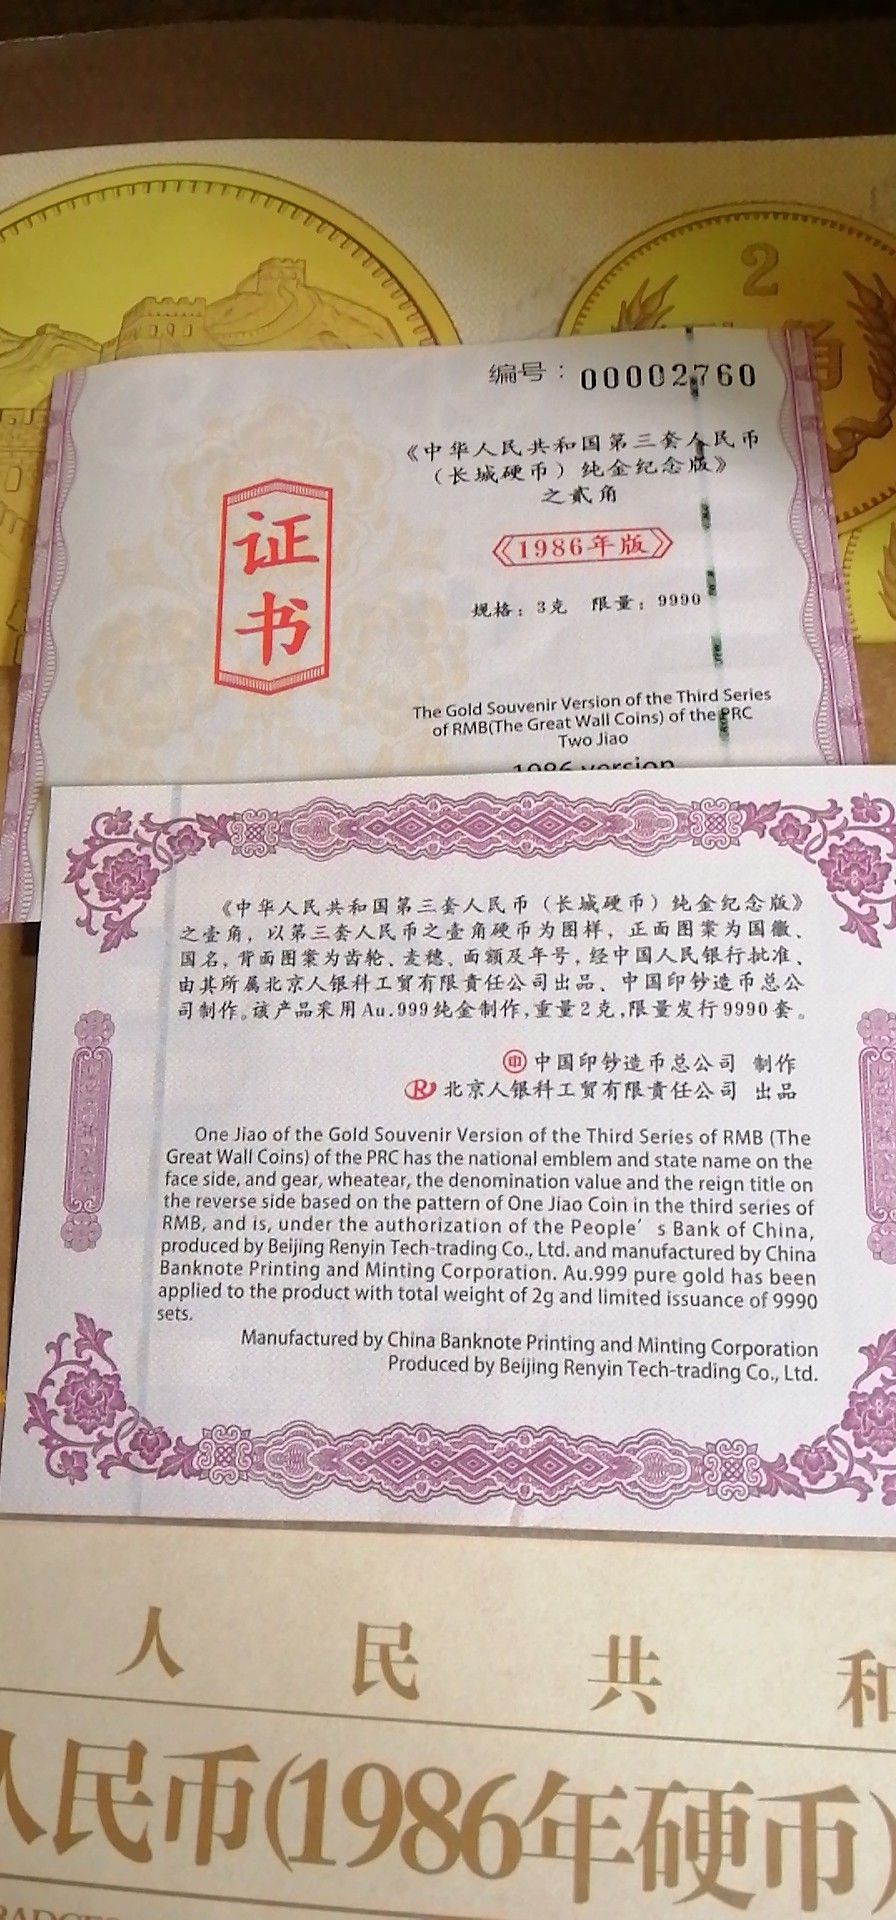 2
角
编号：00002760
《中华人民共和国第三套人民币
（长城硬币）纯金纪念版》
之贰角
《1986年版》
规格：3克 限量：9990
证书
The Gold Souvenir Version of the Third Series
of RMB(The Great Wall Coins) of the PRC
Two Jiao
1986 version
《中华人民共和国第三套人民币（长城硬币）纯金纪念版》
之壹角，以第三套人民币之壹角硬币为图样，正面图案为国徽、
国名，背面图案为齿轮、麦穗、面额及年号，经中国人民银行批准、
由其所属北京人银科工贸有限责任公司出品、中国印钞造币总公
司制作。该产品采用Au.999纯金制作，重量2克，限量发行9990套。
印 中国印钞造币总公司 制作
R 北京人银科工贸有限责任公司 出品
One Jiao of the Gold Souvenir Version of the Third Series of RMB (The
Great Wall Coins) of the PRC has the national emblem and state name on the
face side, and gear, wheatear, the denomination value and the reign title on
the reverse side based on the pattern of One Jiao Coin in the third series of
RMB, and is, under the authorization of the People's Bank of China,
produced by Beijing Renyin Tech-trading Co., Ltd. and manufactured by China
Banknote Printing and Minting Corporation. Au.999 pure gold has been
applied to the product with total weight of 2g and limited issuance of 9990
sets.
Manufactured by China Banknote Printing and Minting Corporation
Produced by Beijing Renyin Tech-trading Co., Ltd.
人民共和
人民币(1986年硬币)